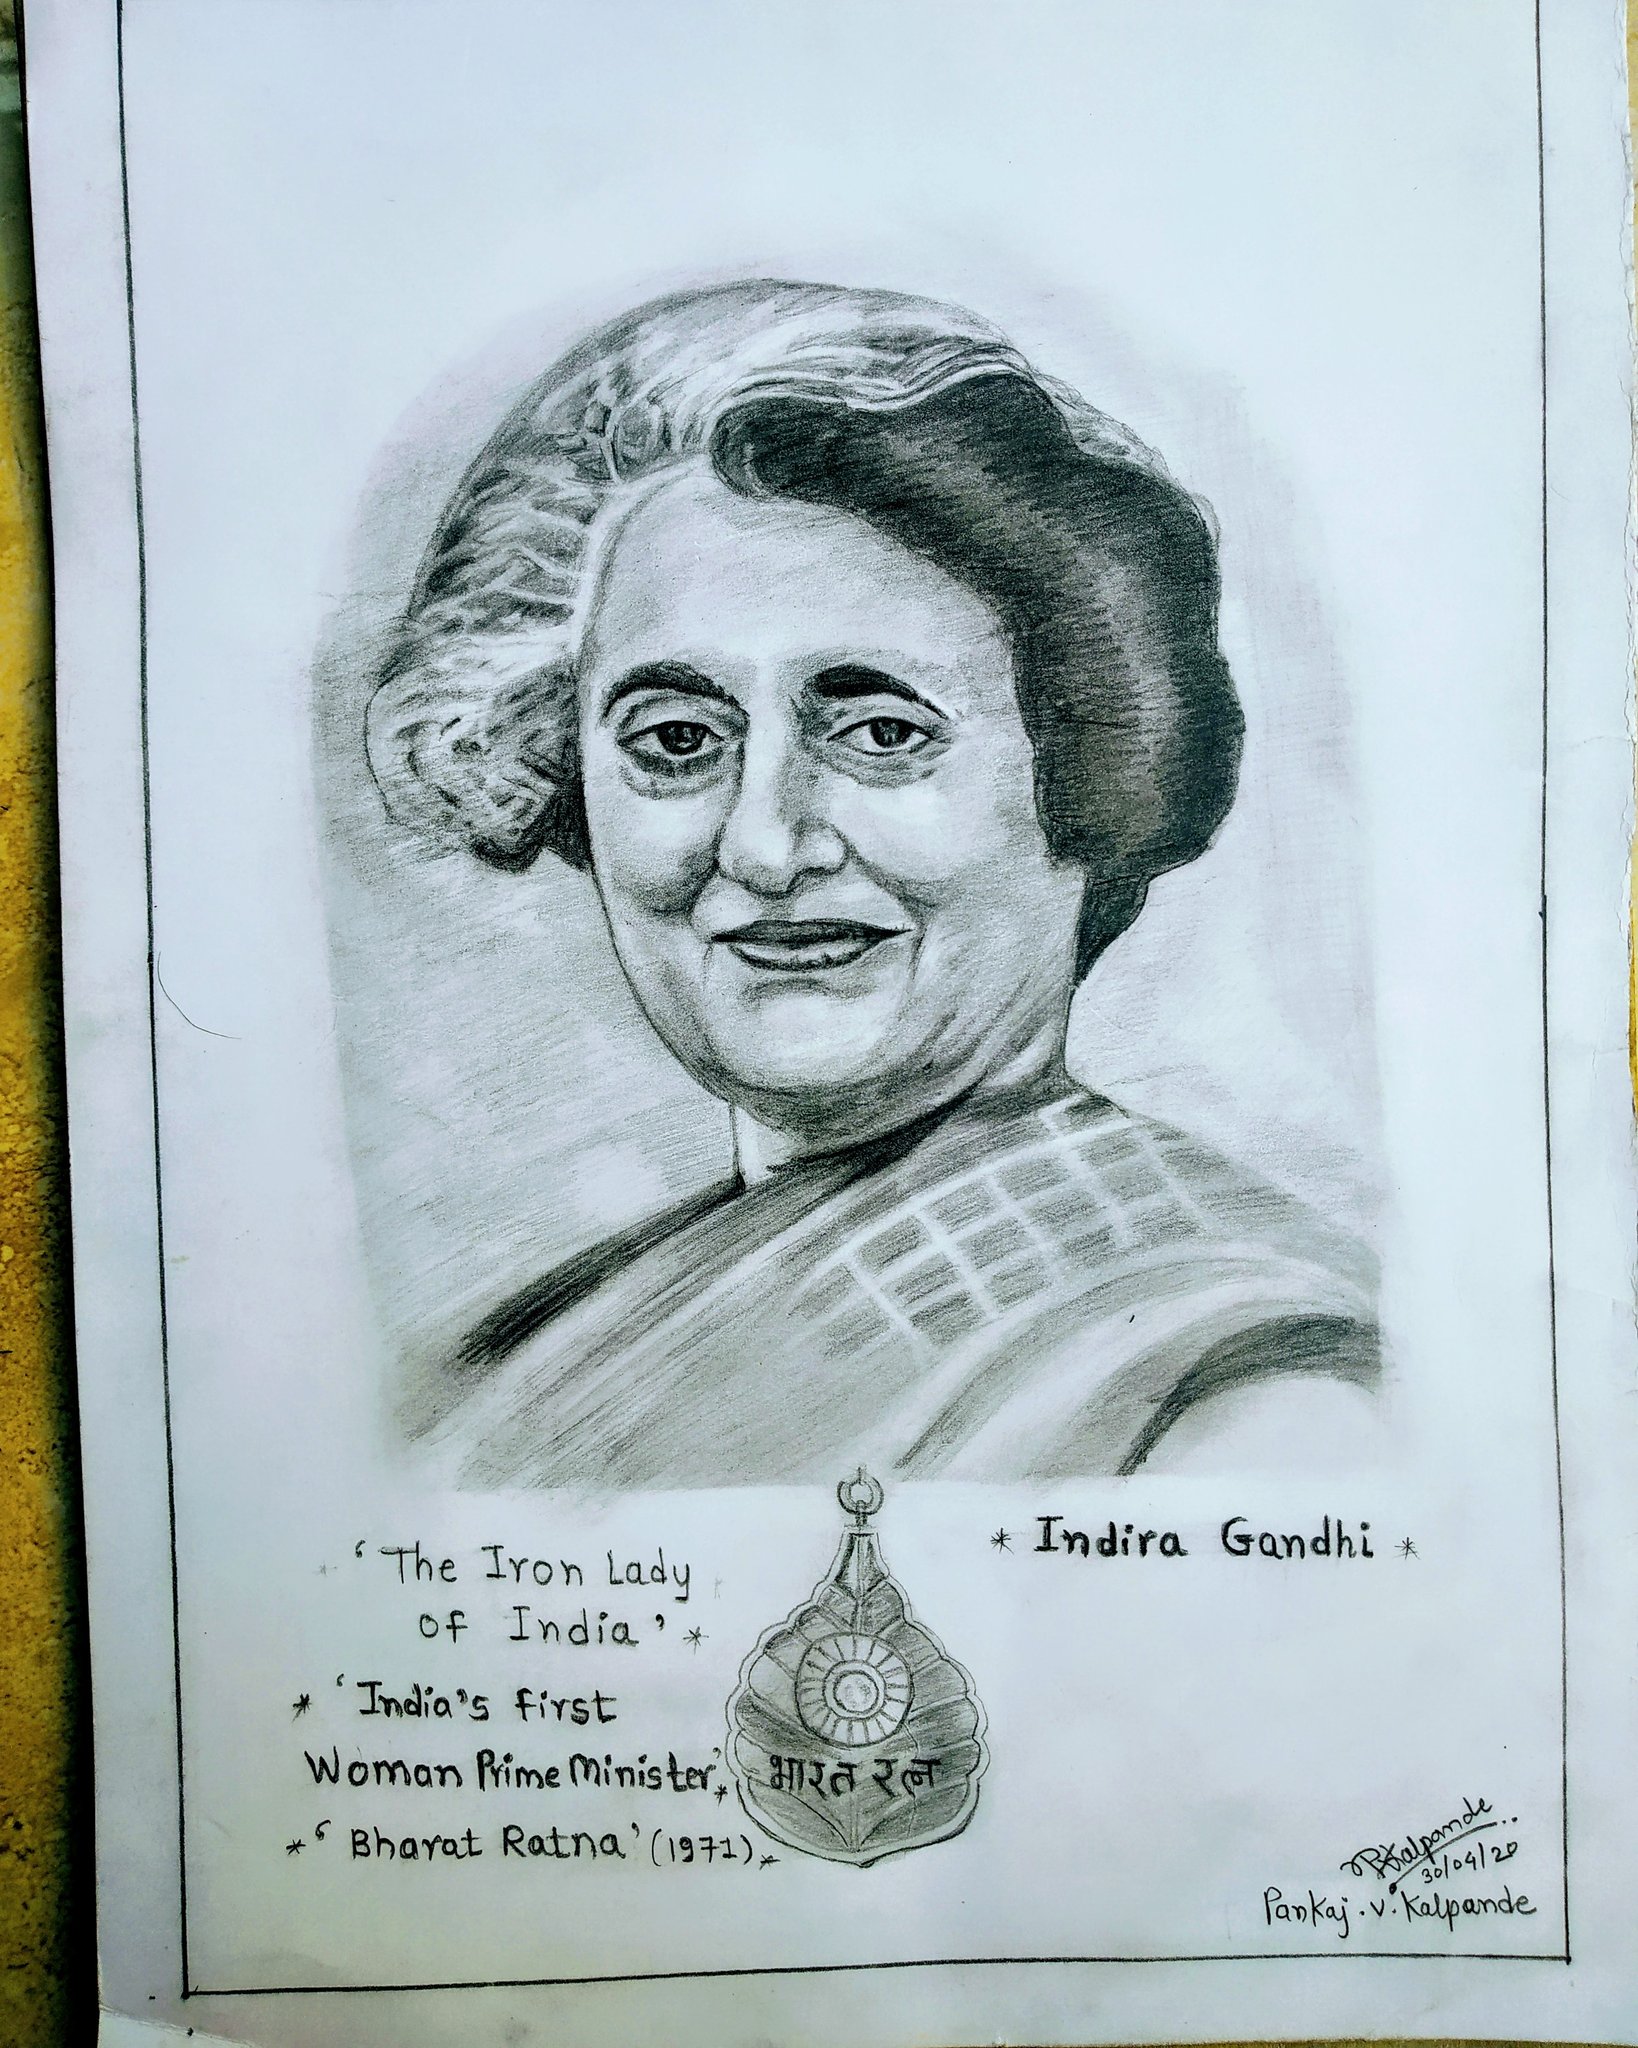 * Indira Gandhi *
'The Iron Lady
of India' *
* 'India's first
Woman Prime Minister' *
* 'Bharat Ratna' (1971) *
भारत रत्न
PKalpande..
30/04/20
Pankaj. V. Kalpande